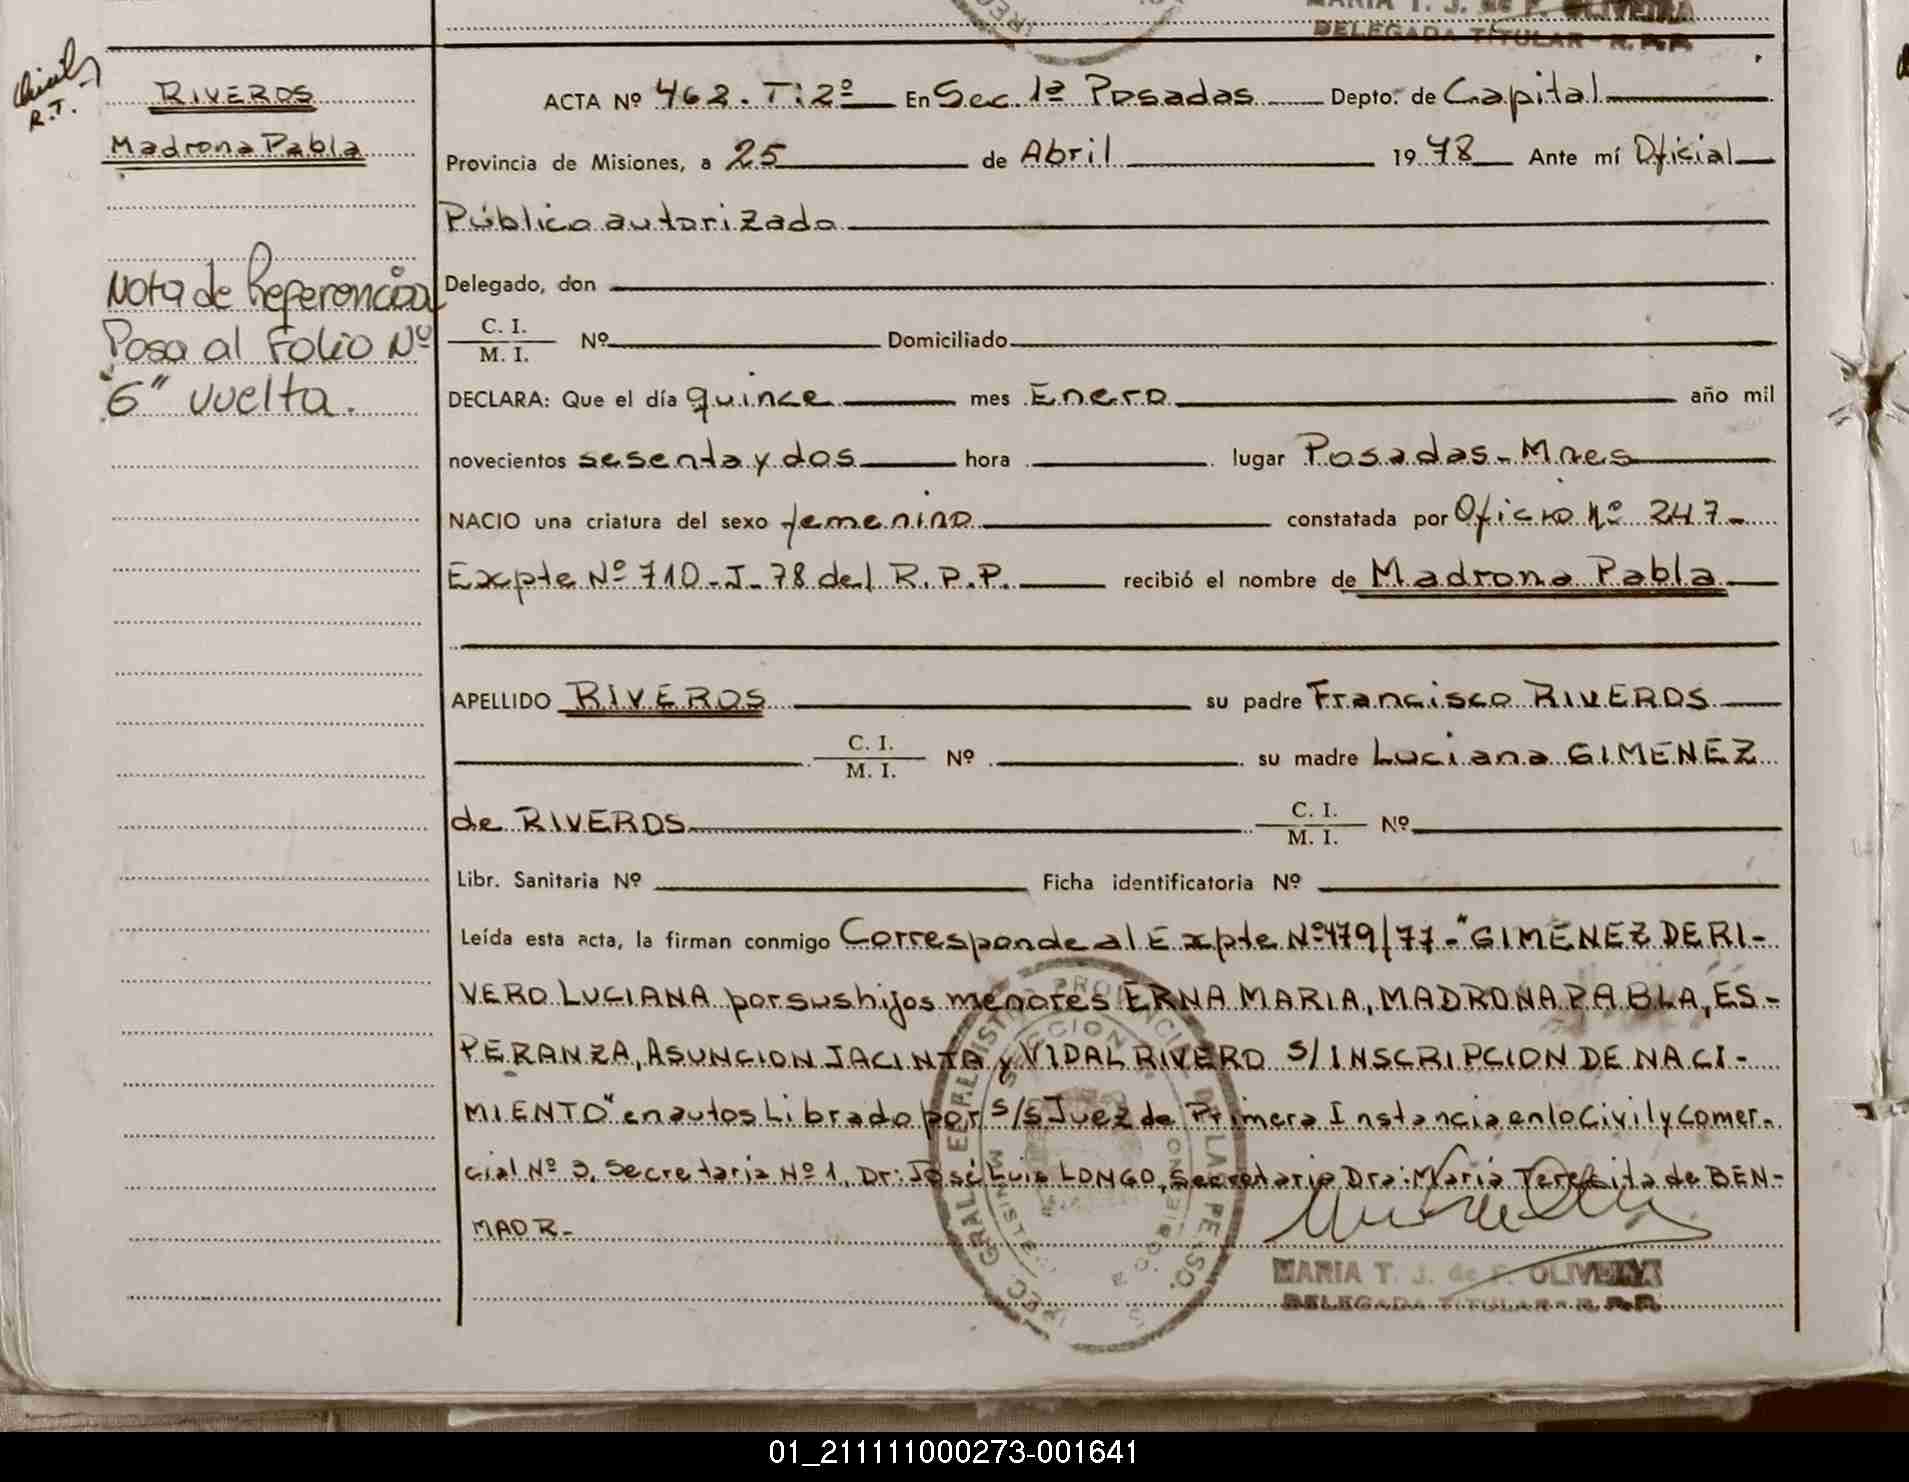 MARIA T. J. de F. OLIVEIRA
DELEGADA TITULAR - R. P. P.
R.T.
RIVEROS
Madrona Pabla
Nota de Referencia
Pasa al Folio Nº
"6" vuelta.
ACTA Nº 462. T: 2º En Sec. 1ª Posadas Depto. de Capital
Provincia de Misiones, a 25 de Abril 1978 Ante mí Oficial
Público autorizado
Delegado, don
C. I.
M. I. Nº Domiciliado
DECLARA: Que el día quince mes Enero año mil
novecientos sesenta y dos hora lugar Posadas - Mnes
NACIO una criatura del sexo femenino constatada por Oficio Nº 247 -
Expte Nº 710 - J - 78 del R. P. P. recibió el nombre de Madrona Pabla
APELLIDO RIVEROS su padre Francisco RIVEROS
C. I.
M. I. Nº su madre Luciana GIMENEZ
de RIVEROS C. I.
M. I. Nº
Libr. Sanitaria Nº Ficha identificatoria Nº
Leída esta acta, la firman conmigo Corresponde al Expte Nº 479/77 - "GIMENEZ DE RI-
VERO LUCIANA por sus hijos menores ERNA MARIA, MADRONA PABLA, ES-
PERANZA, ASUNCION JACINTA y VIDAL RIVERO S/ INSCRIPCION DE NACI-
MIENTO" en autos Librado por S/S Juez de Primera Instancia en lo Civil y Comer-
cial Nº 3, Secretaria Nº 1, Dr: José Luis LONGO, Secretaria Dra: María Teresita de BEN-
MADR.-
MARIA T. J. de F. OLIVEIRA
DELEGADA TITULAR - R. P. P.
01_211111000273-001641